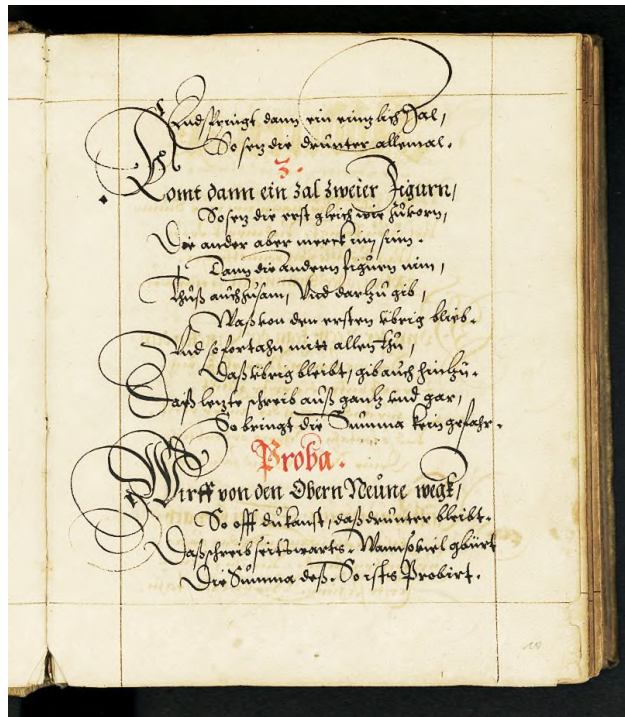 Und springt dann ein eintzlich Zal,
So setz die drunter allemal.
3.
Komt dann ein zal zweier Figurn,
So setz die erst gleich wie zůvorn,
Die ander aber merck im sinn.
Dann die andern figůrn nim,
Thůß aůch zůsam, Und darzů gib,
Waß von den ersten übrig blieb.
Und so fortahn mitt allen thů,
Daß übrig bleibt, gib aůch hinzů.
Daß letzte schreib auß gantz und gar,
So bringt die Sůmma kein gefahr.
Proba.
Wirff von den Obern Neůne wegk,
So offt dů kanst, daß drůnter bleibt.
Daß schreib seitswarts. Wann soviel gbürt
Die Sůmma deß. So ists Probirt.
10